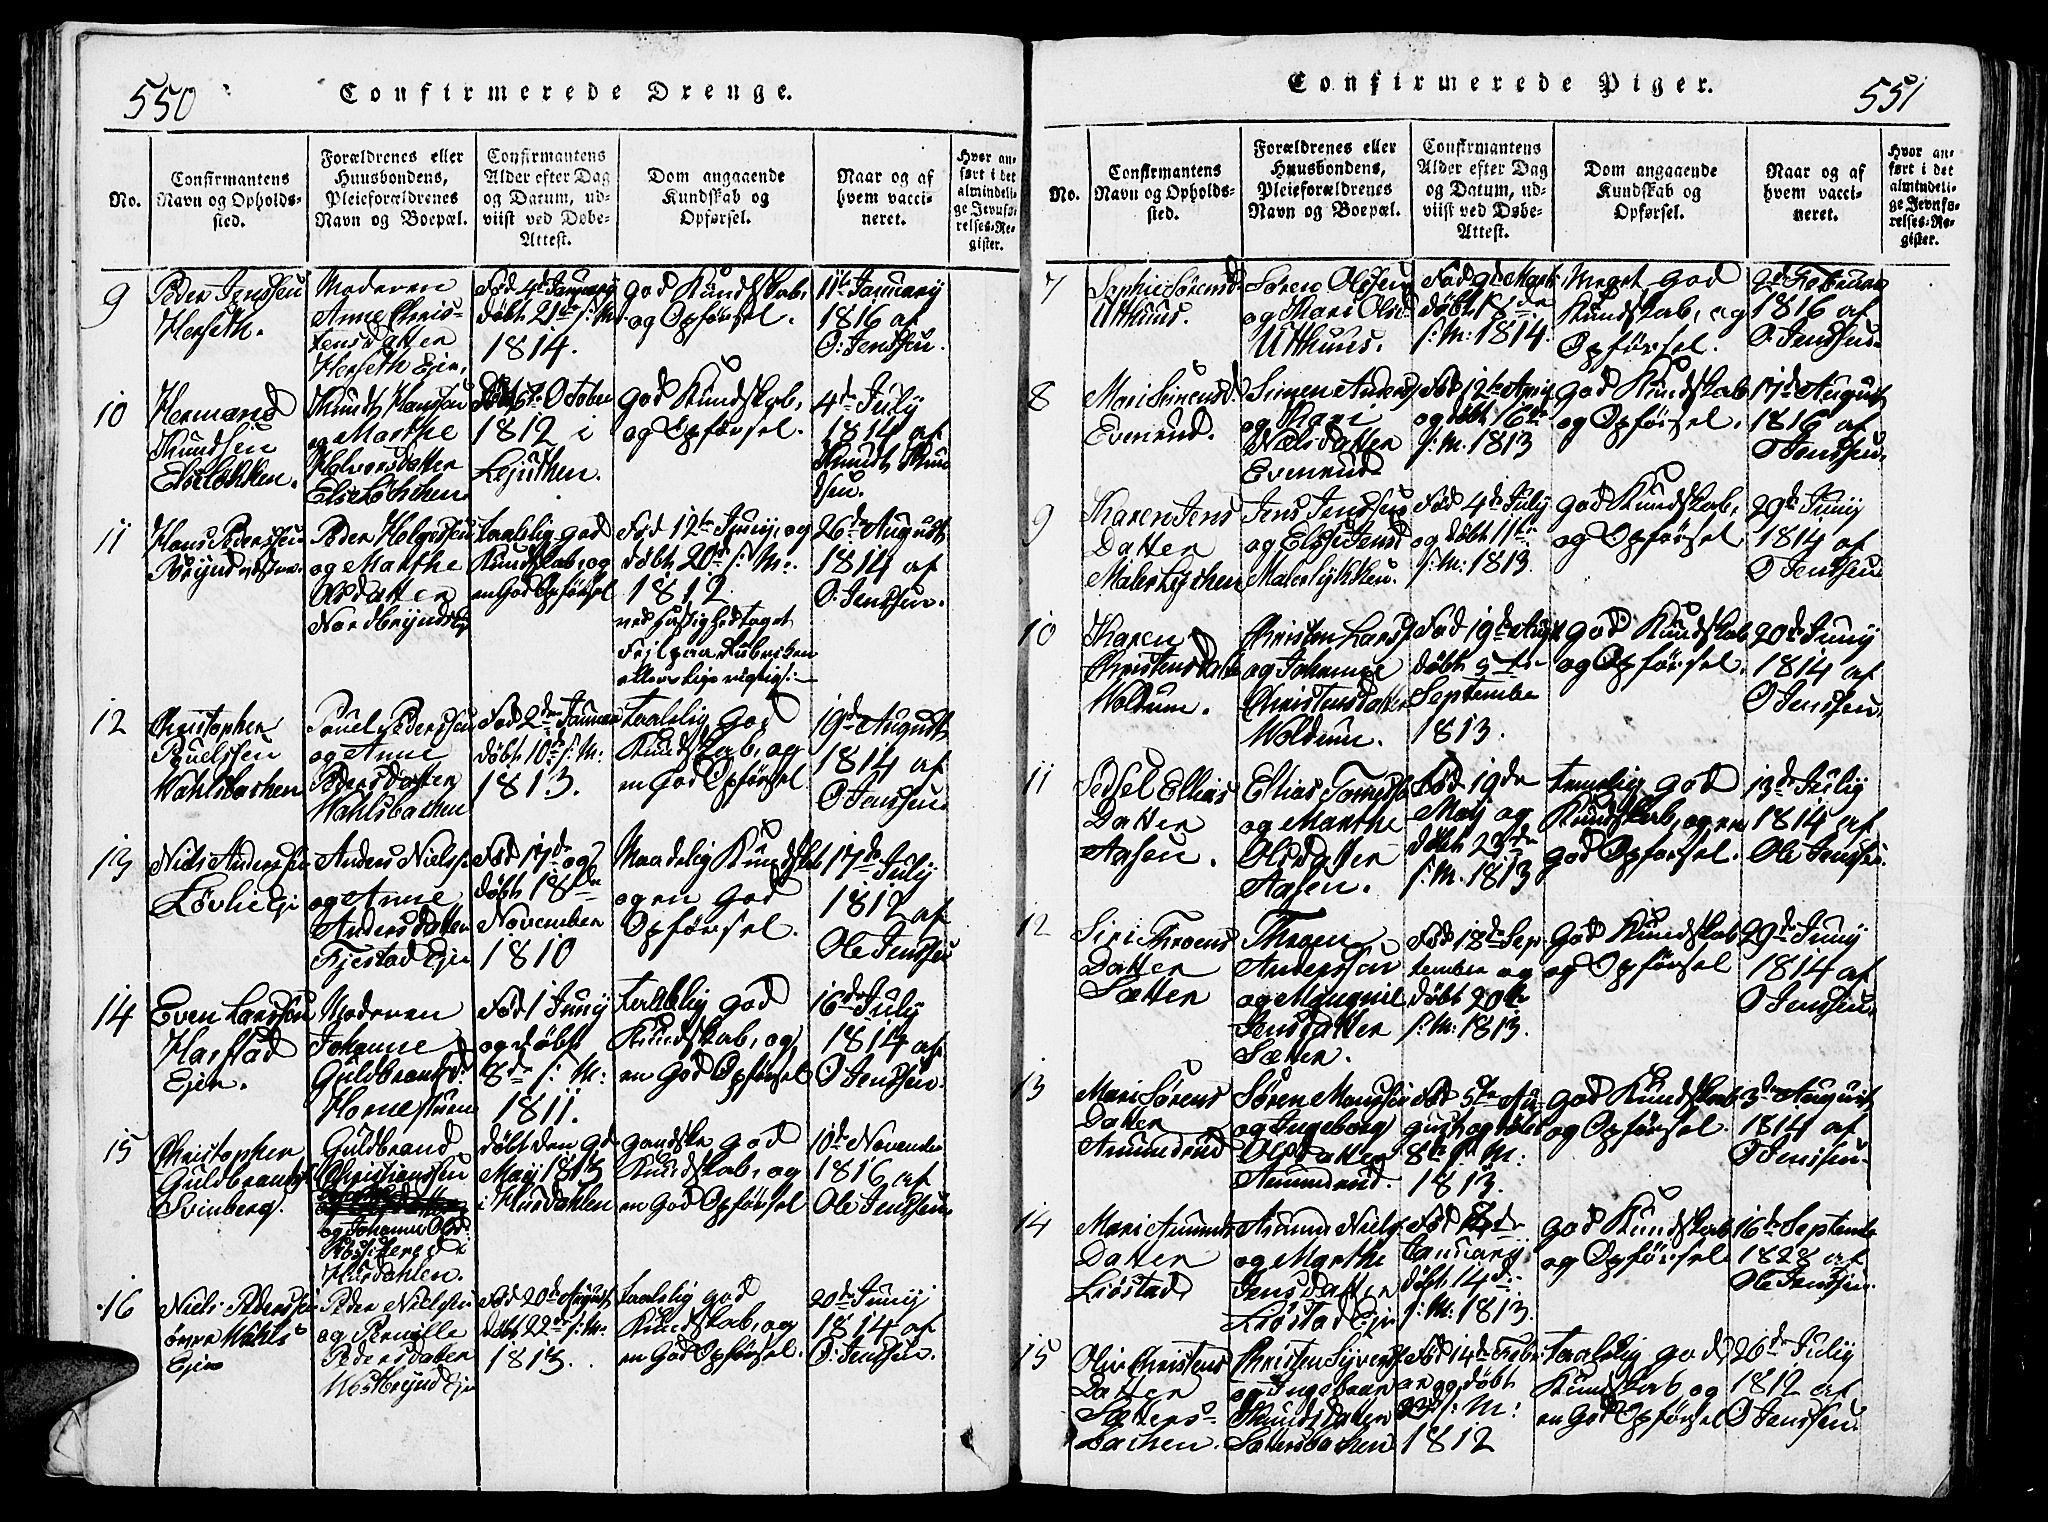 550
Confirmerede Drenge.
No.
Confirmantens
Navn og Opholds-
sted.
Forældrenes eller
Huusbondens,
Pleieforældrenes
Navn og Boepæl.
Confirmantens
Alder efter Dag
og Datum, ud-
viist ved Døbe-
Attest.
Dom angaaende
Kundskab og
Opførsel.
Naar og af
hvem vacci-
neret.
Hvor an-
ført i det
almindeli-
ge Jevnfø-
relses-Re-
gister.
9
Peder Jenssen
Herseth.
Moderen
Anne Chris-
tensdatter
Herseth Ejer,
Fød 4de January
døbt 21de s: M:
1814.
god Kundskab,
og Opførsel.
11te January
1816 af
O: Jenssen.
10
Hermand
Knudsen
Elselökken.
Knudt Hanssen
og Marthe
Halvorsdatter
Elselöchchen
October
1812 i
Lejrdhen.
god Kundskab,
og Opførsel.
4de July
1814 af
Knudt Knud
dsen.
11
Hans Pederssen
Brynd
Peder Helgessen
og Marthe
Olsdatter
Nordbrynds
taalelig god
Kundskab, og
en God Opførsel
Fød 12te Juny, og
døbt 20de s: M:
1812
ved Hastighed taget
Fejl paa Rubriken
26de August
1814 af
O: Jenssen.
12
Christopher
Pouelssen
Wahlsbachen
Pouel Pederssen
og Anne
Pedersdatter
Wahlsbachen
Fød 2den Januar
døbt 10de s: M:
1813.
Taalelig God
Kundskab, og
en God Opførsel
19de August
1814 af
O Jenssen
13
Niels Anderssen
Løvlie Ejer
Anders Nielss:
og Anne
Andersdatter
Fjestad Ejer
Fød 17de og
døbt 18de
November
1810
Maadelig Kundskab
og en God
Opførsel.
17de July
1812 af
Ole Jenssen
14
Even Larssen
Harstad
Ejer.
Moderen
Johanne
Guldbrandsd:
Hornestuen
Fød 1 Juny
og døbt
8de s: M:
1811.
Taalelig god
Kundskab, og
en God Opførsel
16de July
1814 af
O Jenssen.
15
Christopher
Guldbrands
Svinberg.
Guldbrand
Christianssen
og Johanne Olsd:
i
Husdahlen.
døbt den 9de
May 1813
i Husdahlen
gandske god
Kundskab, og
en God Opførsel
10de November
1816 af
Ole Jenssen.
16
Niels Pederssen
övre Wahls
Ejer
Peder Nielssen
og Pernille
Pedersdatter
Westbrynd Ejer
Fød 20de August
døbt 22de s: M:
1813.
taalelig god
Kundskab, og
en God Opførsel.
20de Juny
1814 af
O: Jenssen.
551
Confirmerede Piger.
No.
Confirmantens
Navn og Opholds-
sted.
Forældrenes eller
Huusbondens,
Pleieforældrenes
Navn og Boepæl.
Confirmantens
Alder efter Dag
og Datum, ud-
viist ved Døbe-
Attest.
Dom angaaende
Kundskab og
Opførsel.
Naar og af
hvem vacci-
neret.
Hvor an-
ført i det
almindeli-
ge Jevnfø-
relses-Re-
gister.
7
Sophie Sørensd
Utthuus.
Søren Olssen
og Kari Olsd
Utthuus.
Fød 9de Marti
døbt 18de
s: M: 1814.
Meget god
Kundskab, og
Opførsel.
9de Februar
1816 af
O: Jenssen.
8
Mari Simensd.
Evenrud.
Simen Anders
og Kari
Nielsdatter
Evenrud
Fød 12te April
og døbt 16de
s: M. 1813
god Kundskab
og Opførsel.
17de August
1816 af
O Jenssen.
9
Karen Jens
Datter
Malerlychen
Jens Jenssen
og Else Jensd
Malerlykken.
Fød 4de July
og døbt 11te
s: M: 1813.
god Kundskab,
og Opførsel
29de Juny
1814 af
O Jenssen
10
Karen
Christensdatter
Woldum.
Christen Larss
og Johanne
Christensdatter
Woldum.
Fød 19de Augt
døbt 5te
September
1813.
god Kundskab
og Opførsel.
20de Juny
1814 af
O Jenssen.
11
Sedsel Ellias
Datter
Aasen.
Ellias Tomess
og Marthe
Olsdatter
Aasen.
Fød 19de
May og
døbt 23de
s: M. 1813
temelig god
Kundskab, og en
god Opførsel.
13de July
1814 af
Ole Jenssen.
12
Siri Throens
Datter
Sætter
Throen
Anderssen
og Mgugnil
Jensdatter
Sætter.
Fød 18de Sep
tember og
døbt 20de
s: M: 1813.
god Kundskab
og Opførsel
29de Juny
1814 af
O Jenssen.
13
Mari Sørens
Datter
Amundrud
Søren Monssen
og Ingeborg
Olsdatter
Amundrud.
Fød 5te Au
gust og døbt
8de s: M:
1813.
god Kundskab
og Opførsel.
3de August
1814 af
O Jenssen.
14
Mari Amunds
Datter
Liöstad
Amund Niels
og Marthe
Jensdatter
Liöstad Ejer
Fød
January
døbt 14de
s: M. 1813.
god Kundskab
og Opførsel
16de Septembr
1828 af
Ole Jenssen.
15
Oliv Christens
Datter
Sætters-
bachen.
Christen Syvers
og Ingebaar
Knudsdatter
Sætersbachen
Fød 14de Febr
ar og døbt
23de s: M:
1812
Taalelig god
Kundskab og
en God Opførsel
26de July
1812 af
O Jenssen.